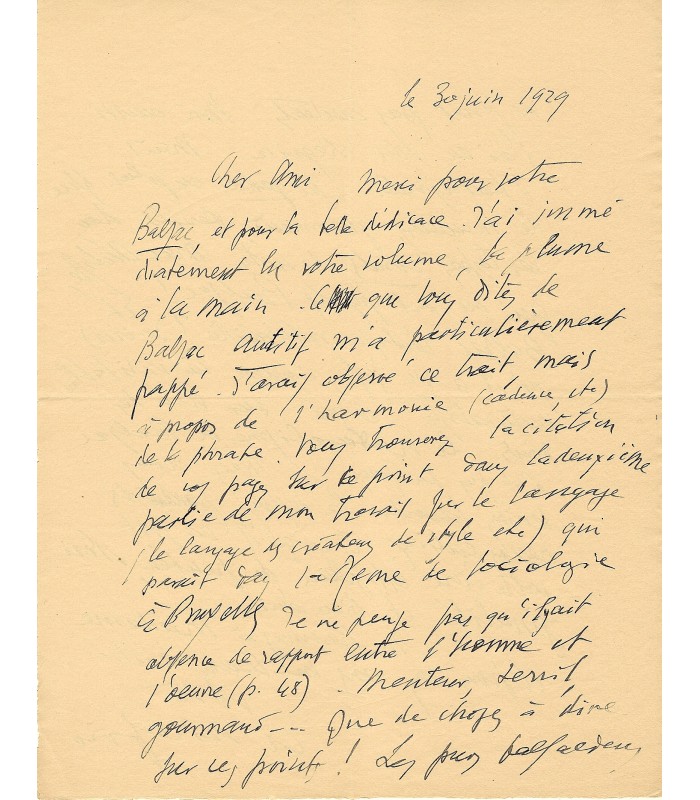 le 30 juin 1929
Cher Ami Merci pour votre
Balzac, et pour la belle dédicace. J'ai immé
diatement lu votre volume, la plume
à la main. Ce que vous dites de
Balzac auditif m'a particulièrement
frappé. J'avais observé ce trait, mais
à propos de l'harmonie (cadence, etc)
de la phrase. Vous trouverez la citation
de vos pages sur ce point dans la deuxième
partie de mon travail sur le langage
(le langage des créateurs de style etc) qui
paraît dans la Revue de Sociologie
à Bruxelles Je ne pense pas qu'il y ait
absence de rapport entre l'homme et
l'oeuvre (p. 48). Menteur, servil,
gourmand --- Que de choses à dire
sur ces points! Les purs balzaciens